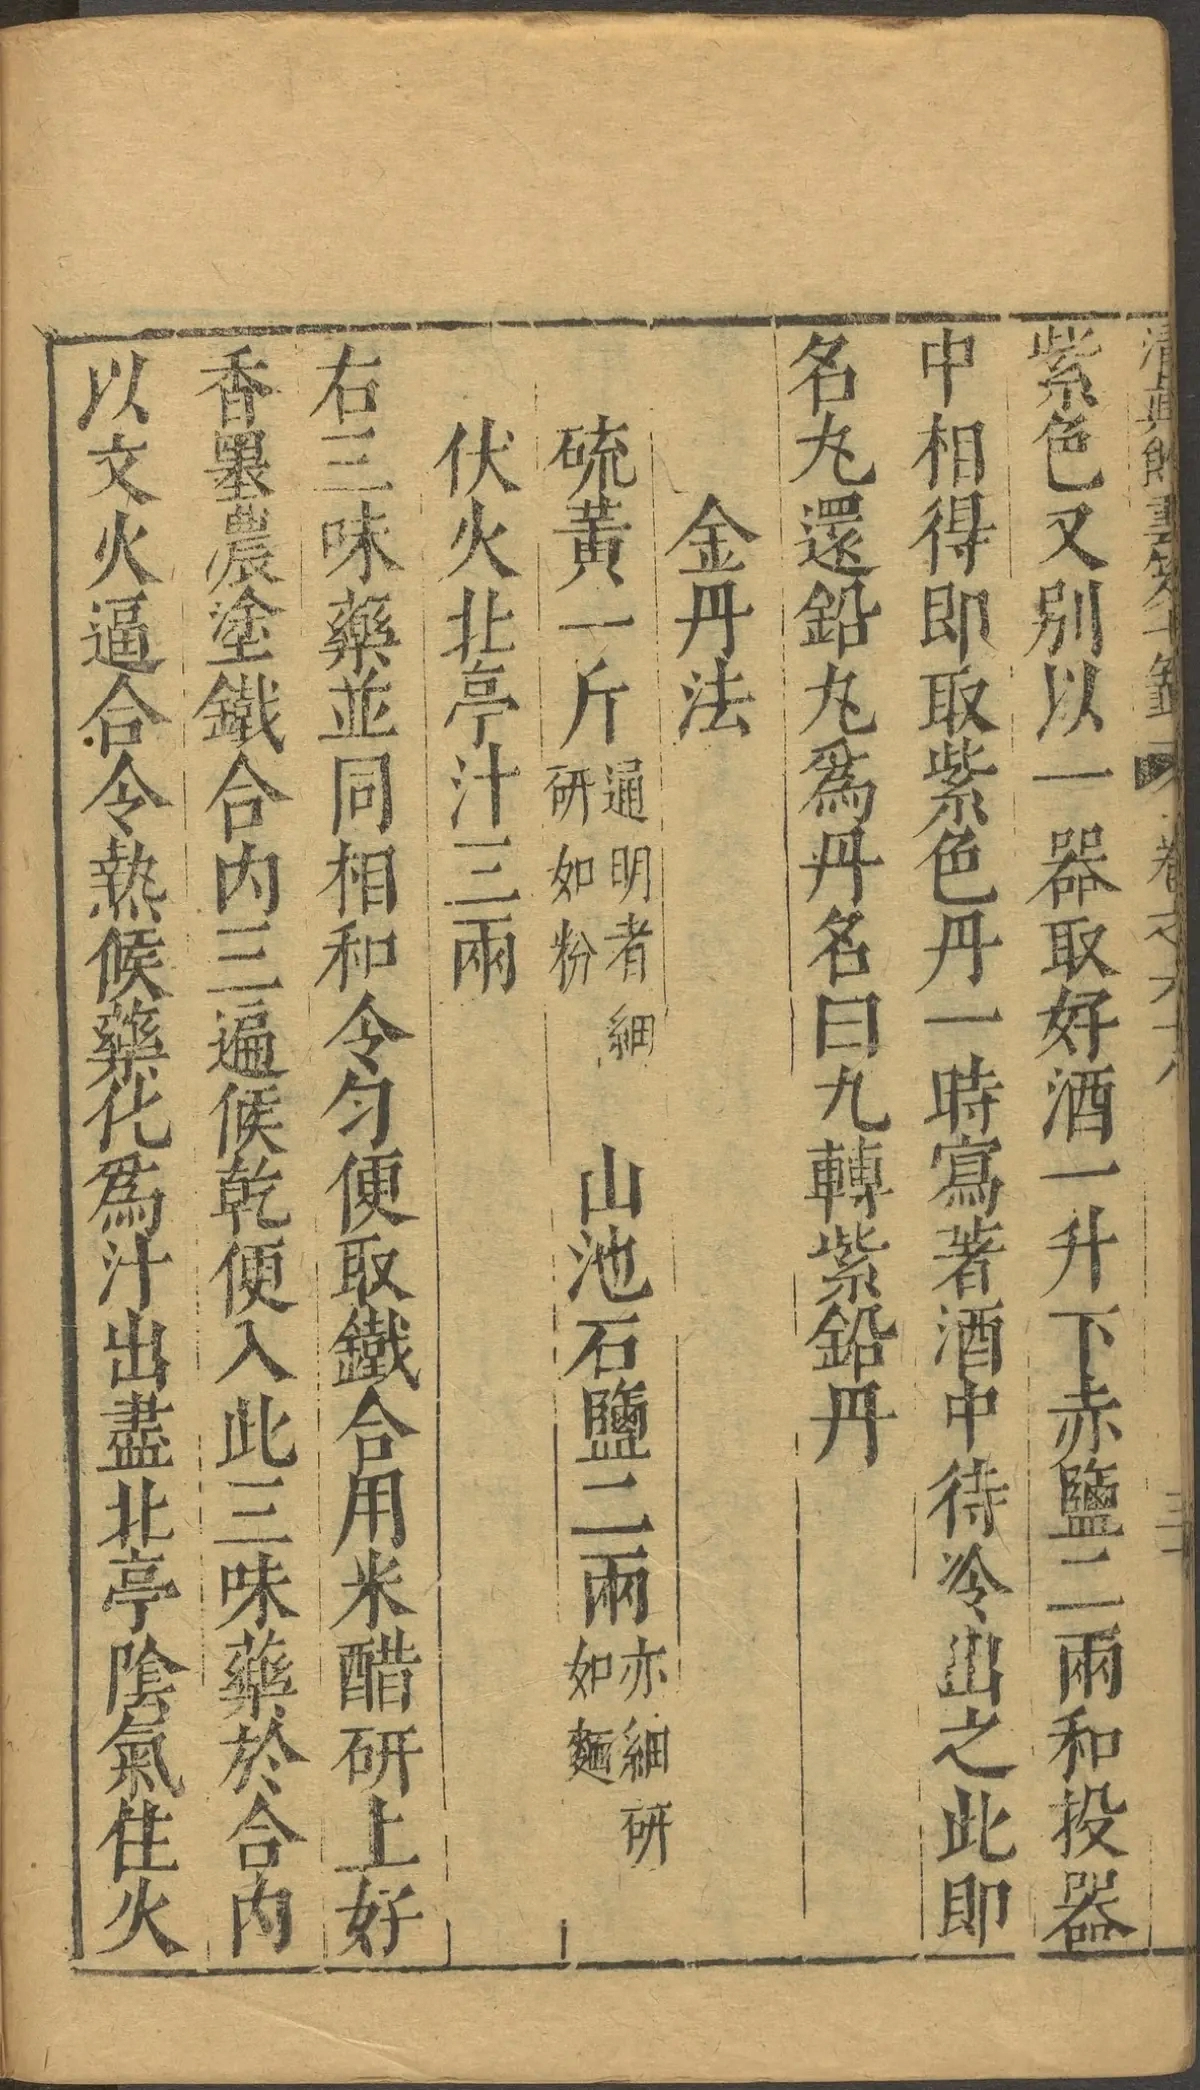 卷之六十八
紫色又別以一器取好酒一升下赤鹽二兩和投器
中相得即取紫色丹一時寫著酒中待冷出之此即
名丸還鉛丸爲丹名曰九轉紫鉛丹
金丹法
硫黃一斤通明者細研如粉 山池石鹽二兩亦細研如麵
伏火北亭汁三兩
右三味藥並同相和令匀便取鐵合用米醋研上好
香墨濃塗鐵合内三遍候乾便入此三味藥於合内
以文火逼合令熱候藥化爲汁出盡北亭陰氣住火